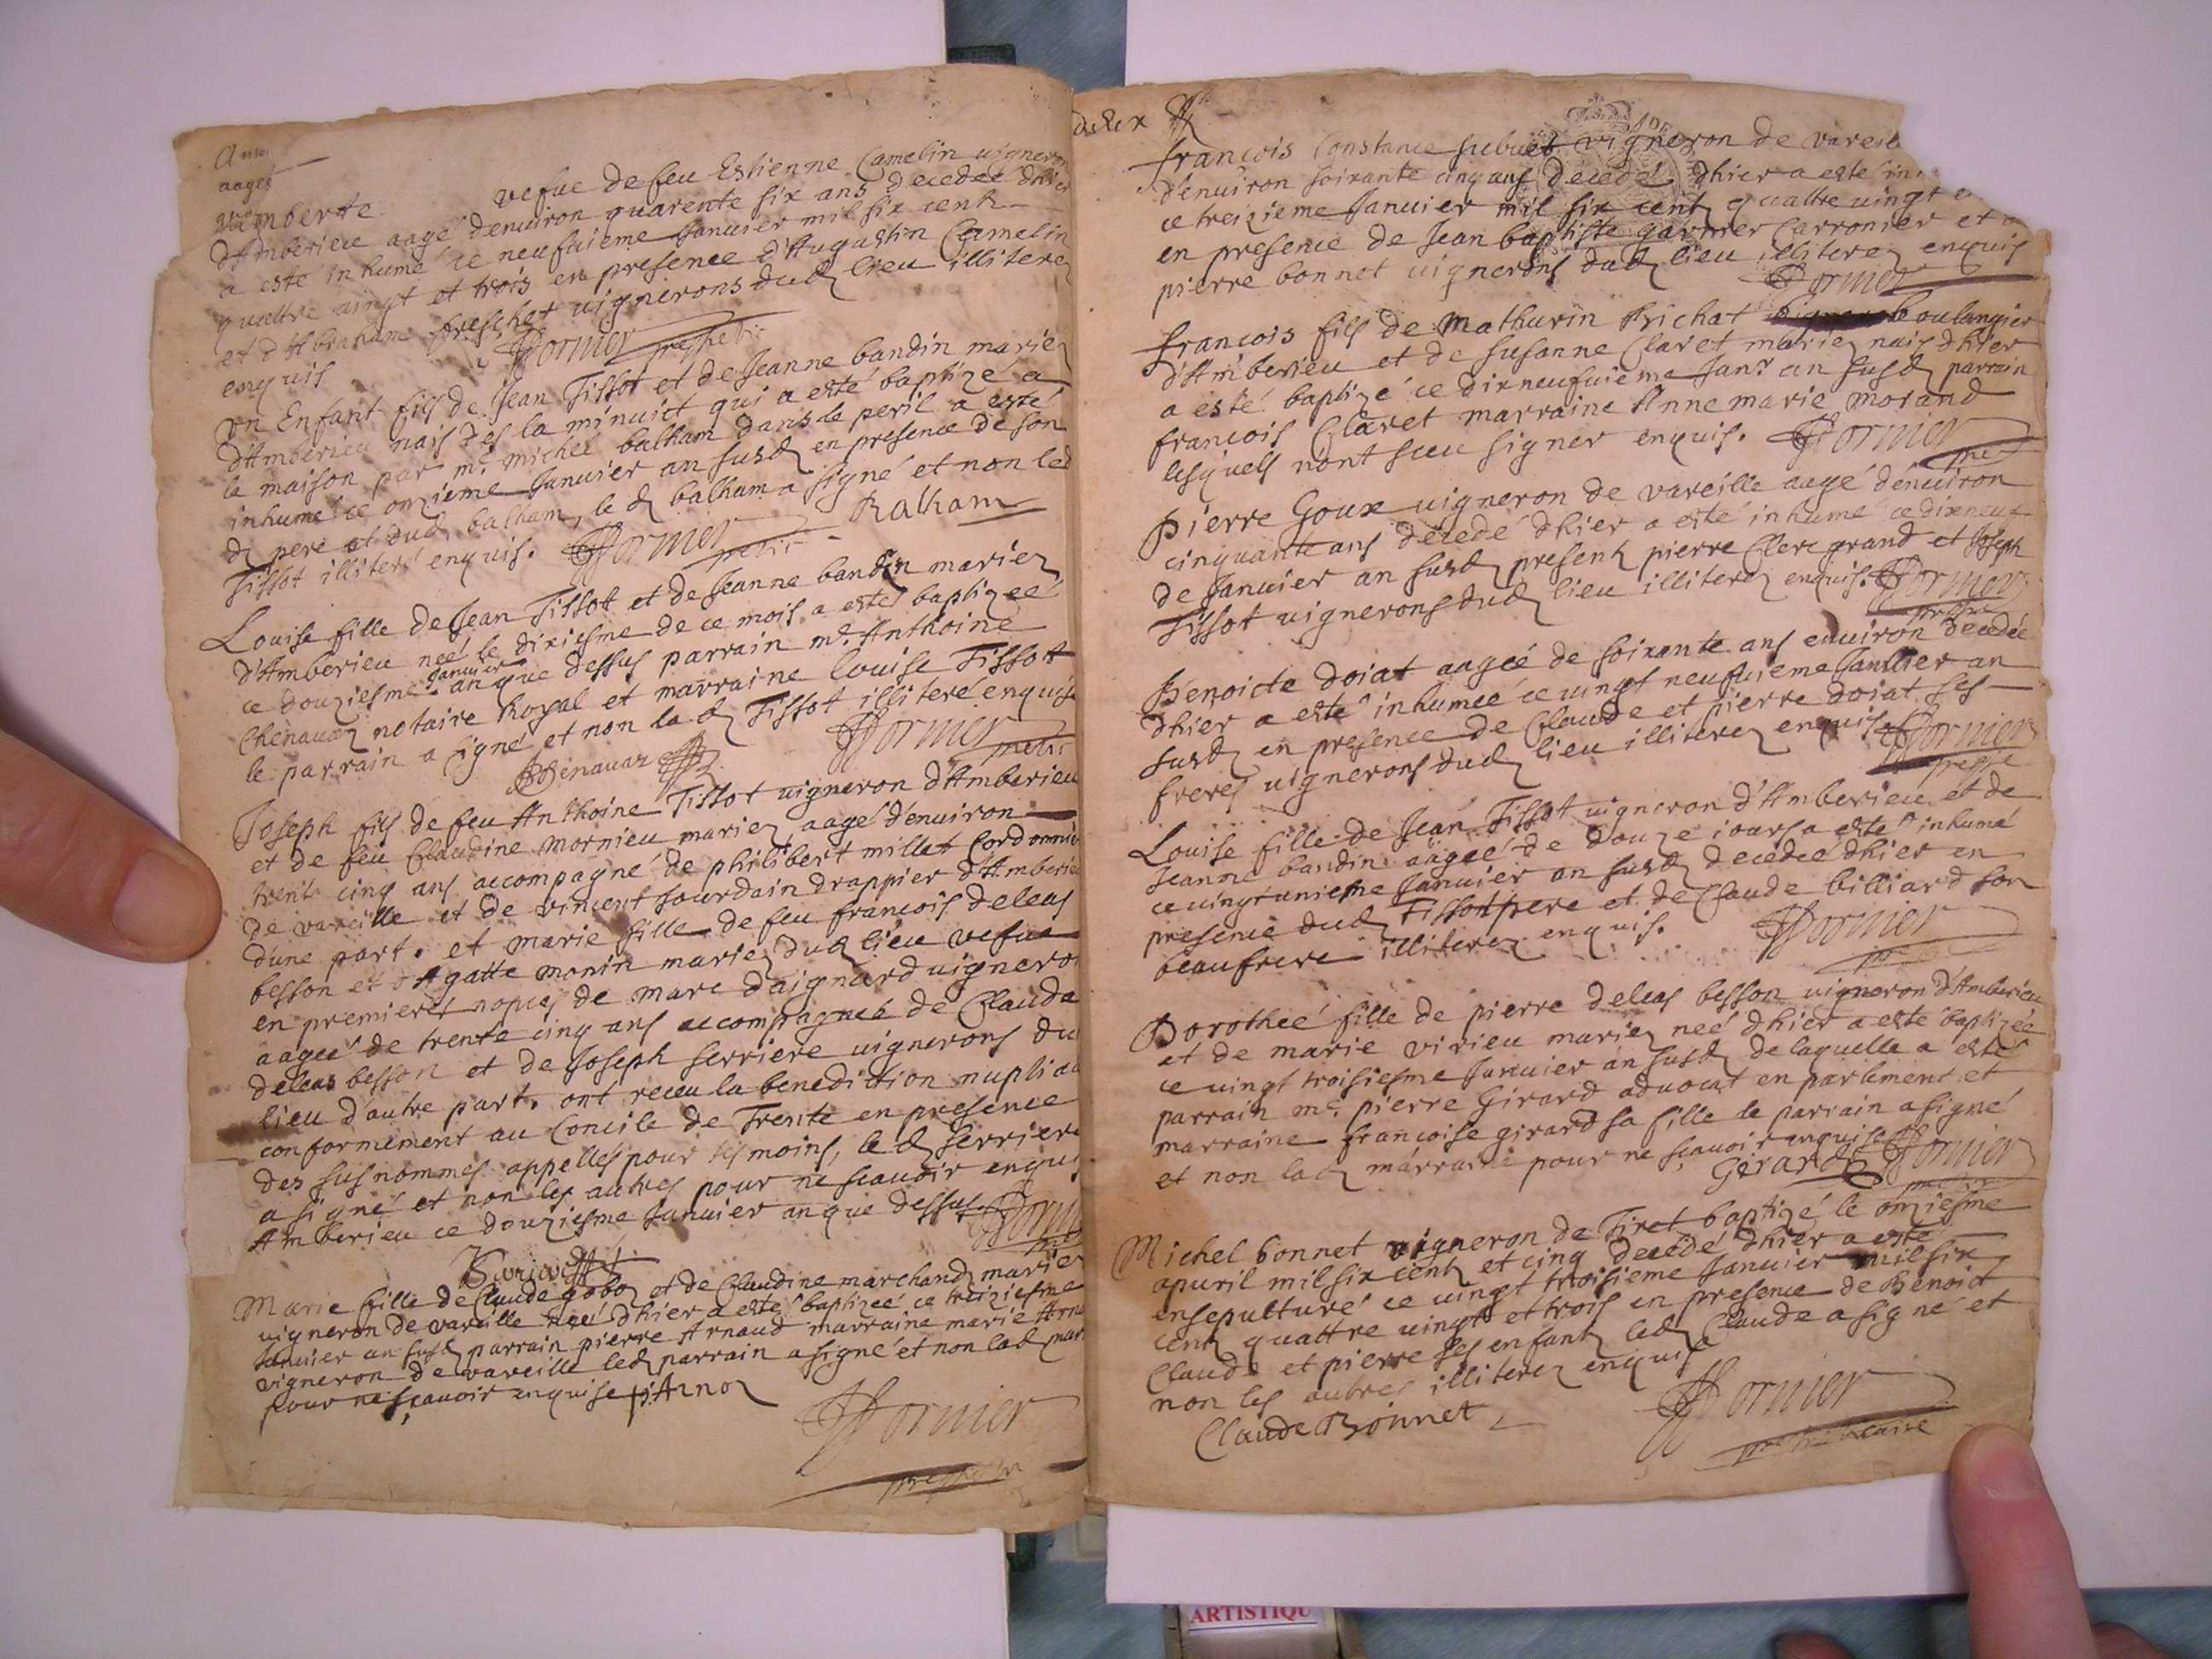 aagee
vamberte vefue de feu Estienne Camelin uigneron
d'Amberieu aagé denuiron quarente six ans decedée dhier
a esté inhumé ce neufuieme Januier mil six centz
quattre uingt et trois en presence d'Augustin Camelin
et d'Abraham freschet uignerons dud lieu illiterez
enquis Dornier
un Enfant fils de Jean Tissot et de Jeanne bandin mariez
d'Amberieu nais des la minuict qui a esté baptizé a
la maison par mr. michel balham dans le peril a esté
inhumé ce onzieme Januier an susd en presence de son
d pere et dud balham, le d balham a signé et non led
Tissot illiteré enquis. Dornier Balham
Louise fille de Jean Tissot et de Jeanne bandin mariez
d'Amberieu neé le dixiesme de ce mois a esté baptizeé
ce douziesme Januier an que dessus parrain mr. Anthoine
Chenauaz notaire Royal et marraine louise Tissot
le parrain a signé et non la d Tissot illiteré enquise
Chenauaz Dornier
Joseph fils de feu Anthoine Tissot uigneron d'Amberieu
et de feu Claudine mornieu mariez, aagé d'enuiron
trente cinq ans accompagné de philibert millet Cordonnier
de vareille et de vincent sourdain drappier d'Amberieu
d'une part. et marie fille de feu francois deleas
besson et d'Agatte monin mariez dud lieu vefue
en premieres nopces de marc daignard uigneron
aageé de trente cinq ans accompagneé de Claude
deleas besson et de Joseph serriere uignerons du
lieu d'autre part. ont receu la benediction nuptial
conformement au Concile de Trente en presence
des susnommes appellés pour tesmoins, led serriere
a signé et non les autres pour ne scauoir enquis
Amberieu ce douziesme Januier an que dessus. Dornier
Marie fille de Claude goboz et de Claudine marchand mariez
uigneron de vareille neé dhier a esté baptizeé ce treiziesme
Januier an susd parrain pierre Arnaud marraine marie Arn
vigneron de vareille led parrain a signé et non lad mar
pour ne scauoir enquise p. Arnoz
Dornier
francois Constance vigneron de vareil
d'enuiron soixante cinq ans decedé dhier a esté in
ce treizieme Januier mil six centz quattre uingt e
en presence de Jean baptiste garnier Carronier et
pierre bonnet uignerons dud lieu illiterez enquis
Dornier
francois fils de Mathurin Richat boulangier
d'Amberieu et de susanne Claret mariez nais dhier
a esté baptizé ce dixneufuieme Janr an susd parrain
francois Claret marraine Anne marie morand
lesquels n'ont sceu signer enquis. Dornier
pierre Goux uigneron de vareille aagé d'enuiron
cinquante ans decedé dhier a esté inhumé ce dixneuf
de Januier an susd presentz pierre Clerc grand et Joseph
Tissot uignerons dud lieu illiterez enquis. Dornier
Benoicte doiat aageé de soixante ans enuiron decedée
dhier a esté inhumeé ce uingt neufuieme Januier an
susd en presence de Claude et pierre doiat ses
freres uignerons dud lieu illiterez enquis Dornier
Louise fille de Jean Tissot uigneron d'Amberieu et de
Jeanne bandin aageé de douze iours a esté inhumé
ce uingtunieme Januier an susd decedeé dhier en
presence dud Tissot pere et de Claude billiard son
beaufrere illiterez enquis. Dornier
Dorotheé fille de pierre deleas besson uigneron d'Amberieu
et de marie virieu mariez neé dhier a esté baptizée
ce uingt troisiesme Januier an susd de laquelle a esté
parrain mr. pierre Girard aduocat en parlement et
marraine francoise girard sa fille le parrain a signé
et non la d marraine pour ne sçauoir enquise
Girard Dornier
Michel bonnet vigneron de Tiret baptizé le onziesme
apuril mil six centz et cinq decedé dhier a esté
ensepulturé ce uingt troisieme Januier mil six
centz quattre uingtz et trois en presence de Benoict
Claude et pierre ses enfantz led Claude a signé et
non les autres illiterez enquis
Claude Bonnet Dornier
ARTISTIQU